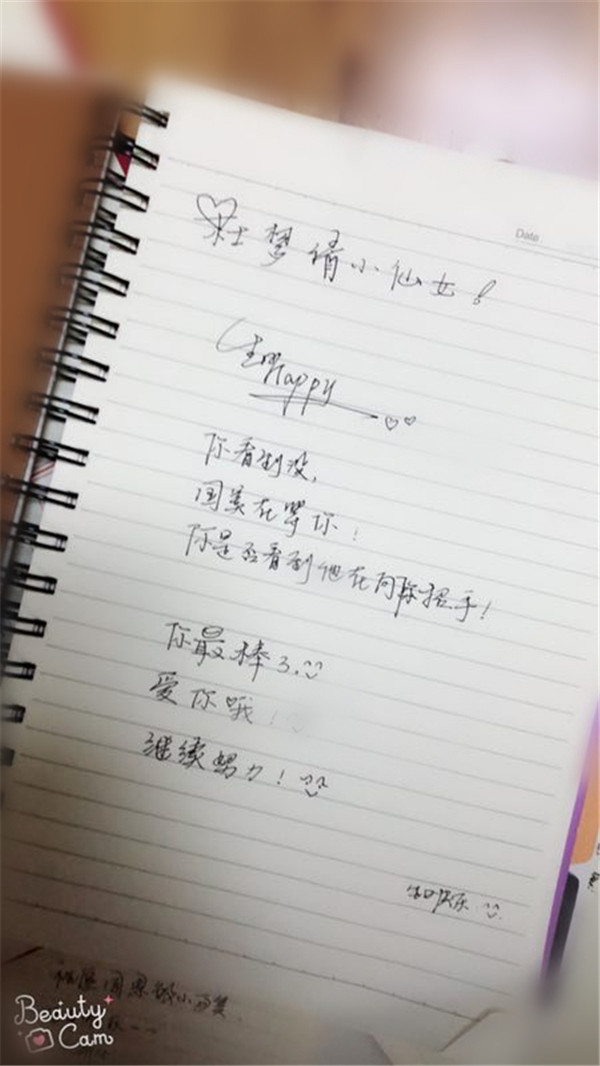 Date
杜梦倩小仙女!
生日Happy
你看到没,
国美在等你!
你是否看到他在向你招手!
你最棒了.
爱你哦!
继续努力!
生日快乐
Beauty
Cam